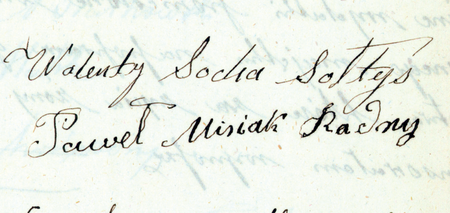 Walenty Socha Sołtys
Paweł Misiak Radny